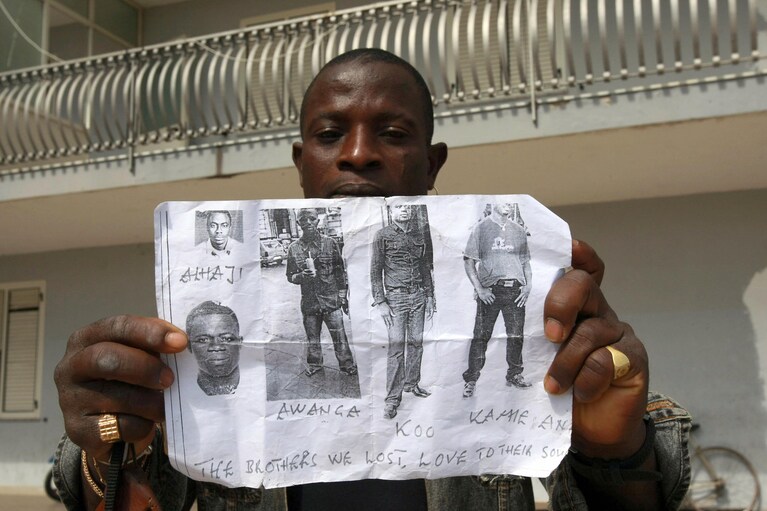 ALHAJI
AWANGA
KOO
KAMIE AN
THE BROTHERS WE LOST, LOVE TO THEIR SOU